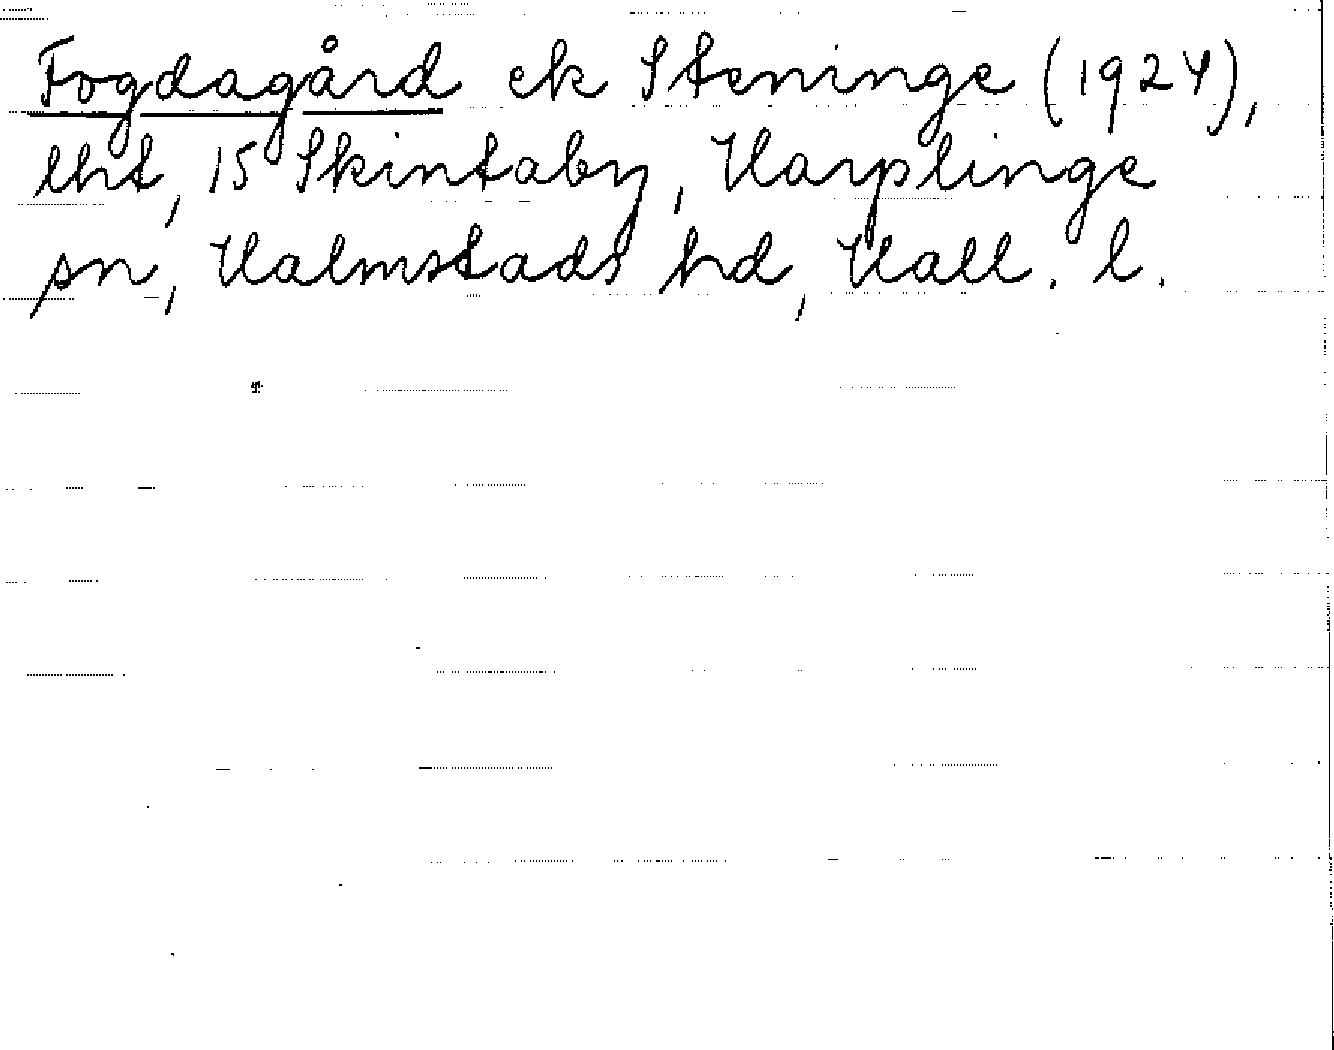 Fogdagård ek Steninge (1924),
lht, 15 Skintaby, Harplinge
sn, Halmstads hd, Hall. l.